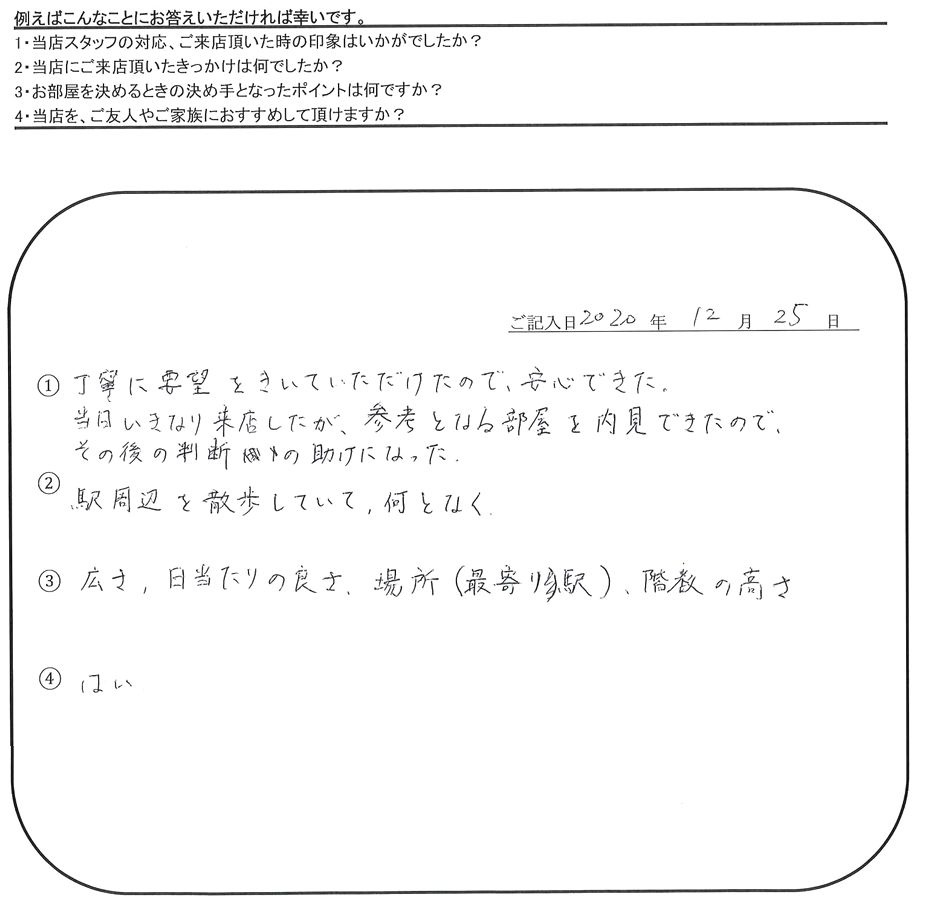 例えばこんなことにお答えいただければ幸いです。
1・当店スタッフの対応、ご来店頂いた時の印象はいかがでしたか？
2・当店にご来店頂いたきっかけは何でしたか？
3・お部屋を決めるときの決め手となったポイントは何ですか？
4・当店を、ご友人やご家族におすすめして頂けますか？
ご記入日2020 年 12 月 25 日
① 丁寧に要望をきいていただけたので、安心できた。
当日いきなり来店したが、参考となる部屋を内見できたので、
その後の判断の助けになった.
② 駅周辺を散歩していて, 何となく.
③ 広さ, 日当たりの良さ、場所(最寄り駅)、階数の高さ
④ はい